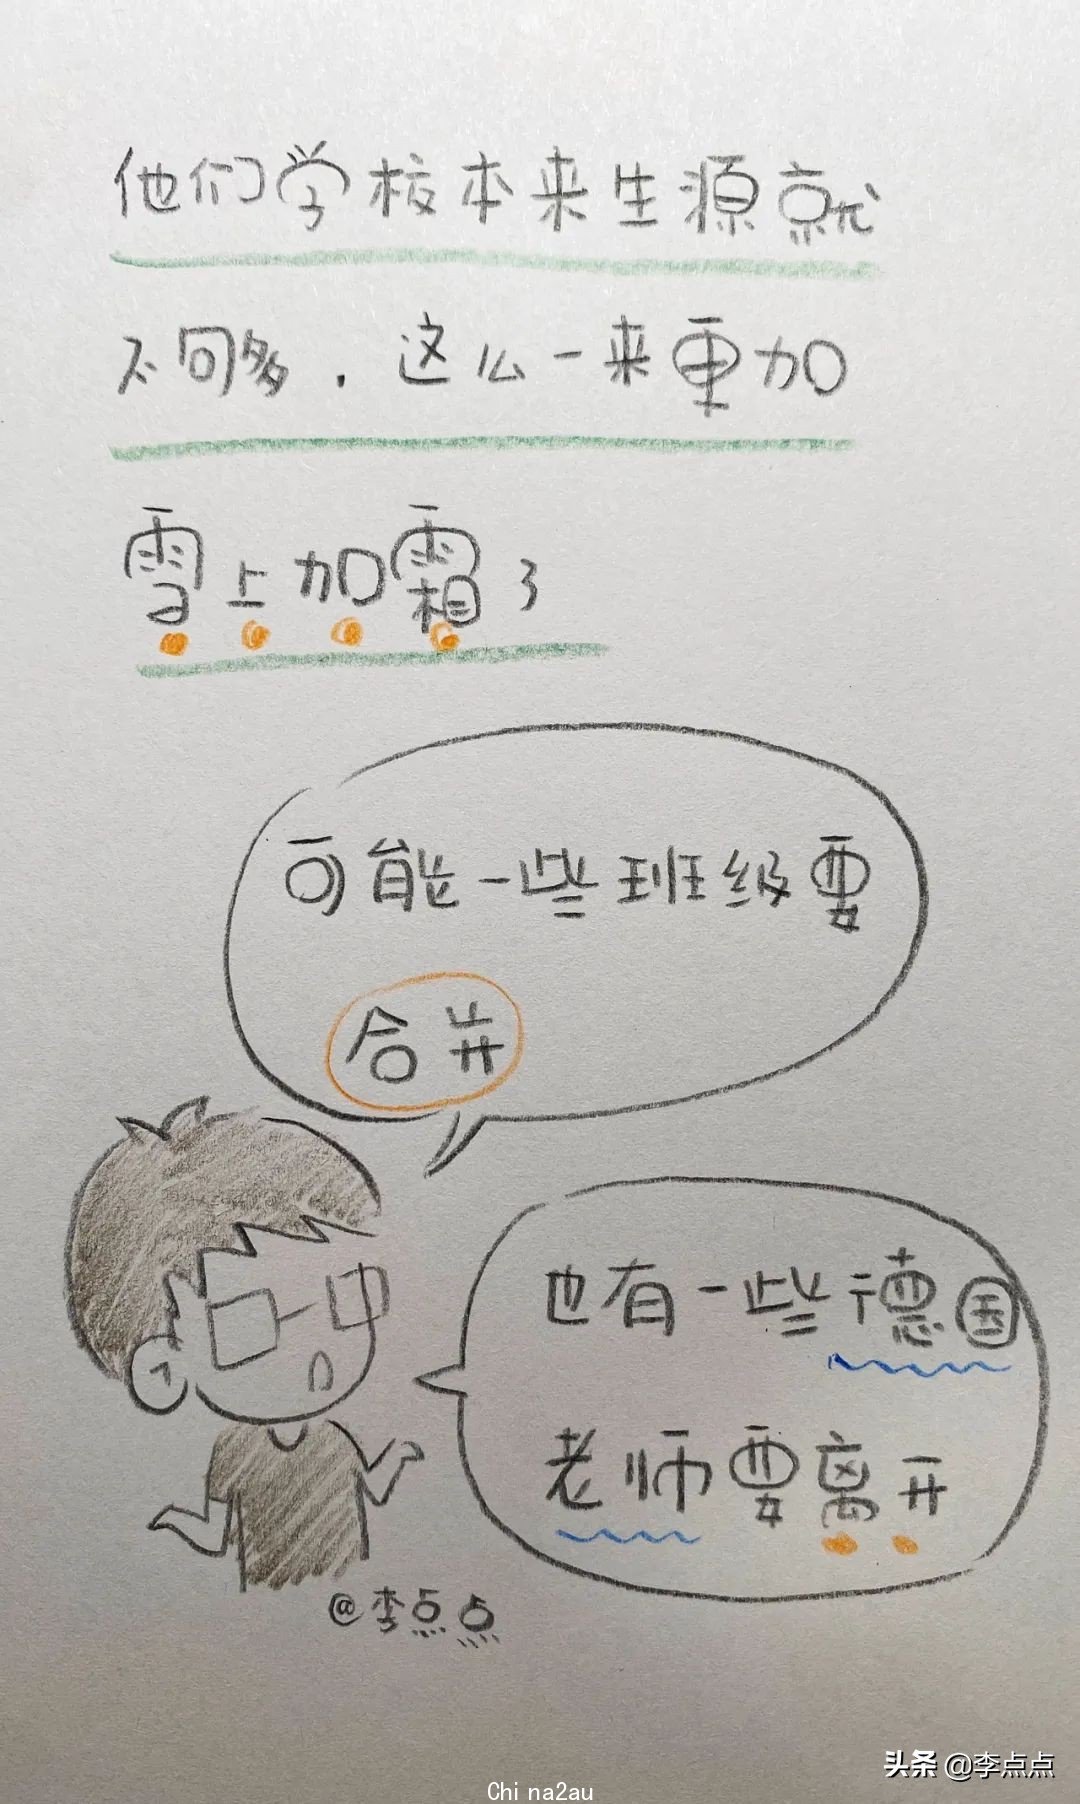 他们学校本来生源就
不够多，这么一来更加
雪上加霜了
可能一些班级要
合并
也有一些德国
老师要离开
@李点点
头条 @李点点
China2au